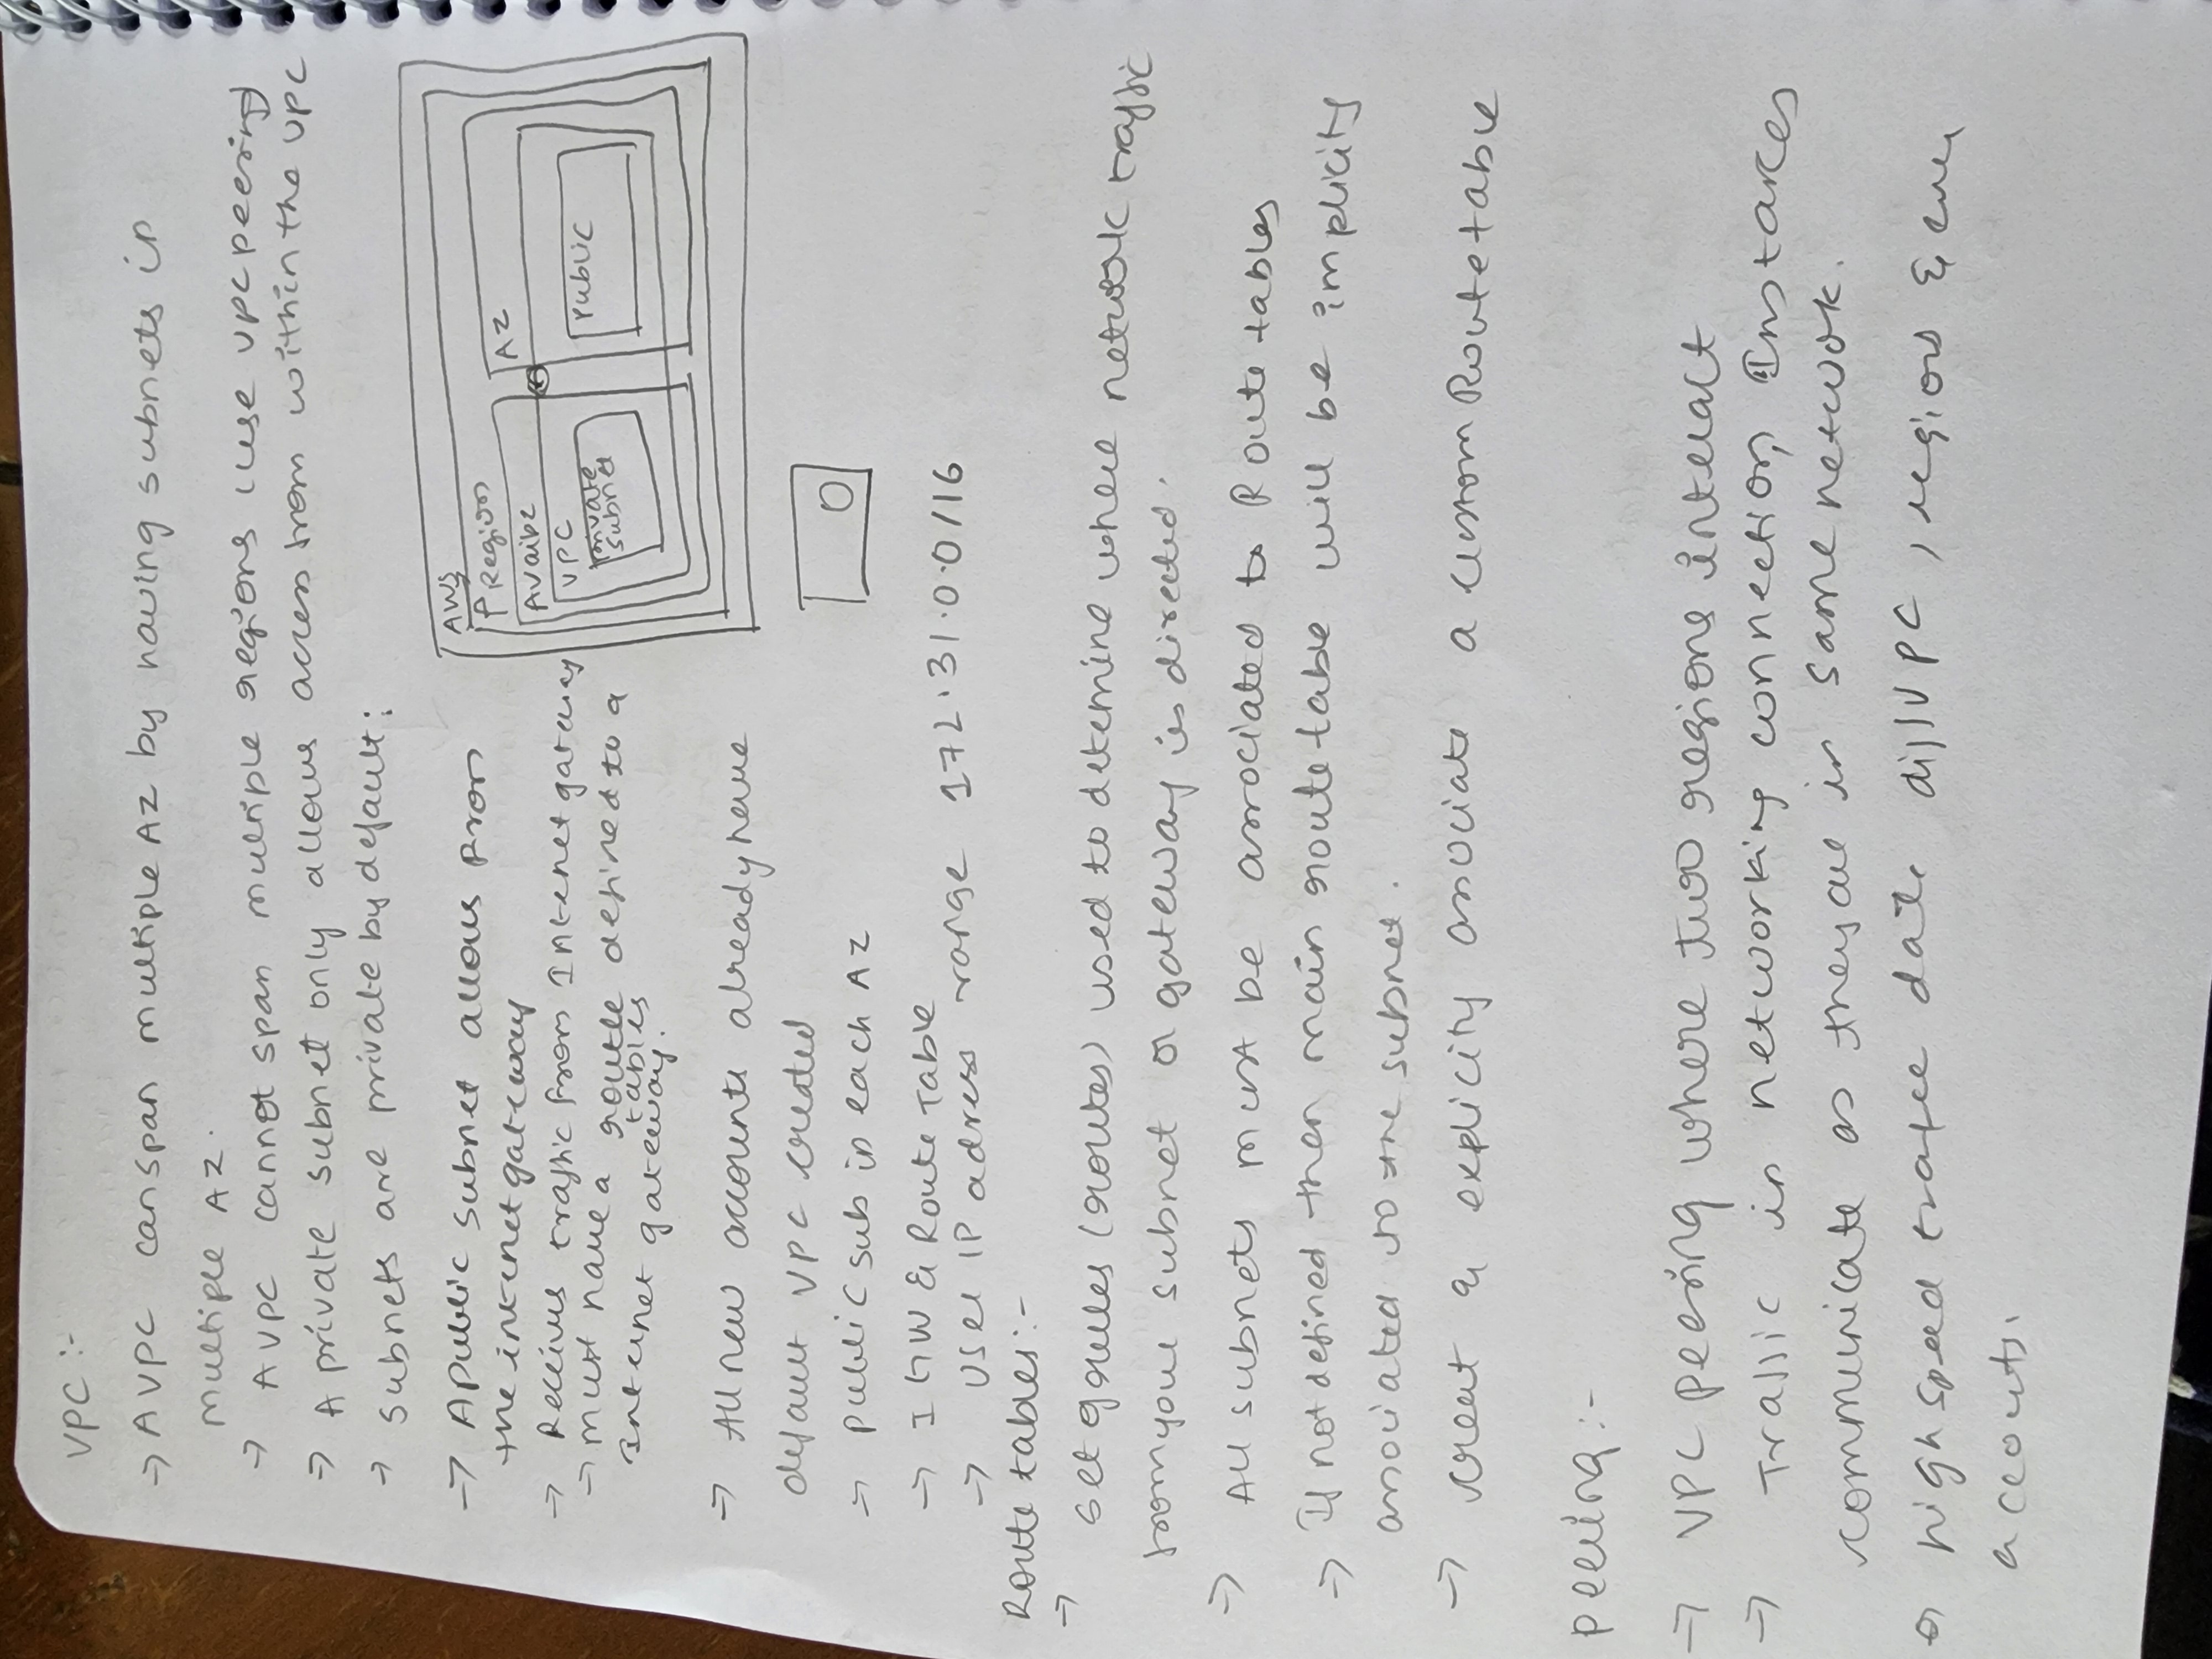 VPC :-
→ A VPC can span multiple AZ by having subnets in
multiple AZ.
→ A VPC cannot span multiple regions (use vpc peering)
→ A private subnet only allows access from within the VPC
→ subnets are private by default:
→ A public subnet allows from
the internet gateway
→ Receives traffic from Internet gateway
→ must have a route defined to a
tables
Internet gateway.
AWS
Region
AZ
VPC
private
subnet
public
→ All new accounts already have
default VPC created
→ public sub in each AZ
→ IGW & Route Table
→ uses IP adress range 172.31.0.0/16
Route tables:-
→
set of rules (routes) used to detemine where network traffic
from your subnet or gateway is directed.
→ All subnets must be associated to Route tables
→ If not defined then main route table will be implicity
associated to the subnet.
→ creat & explicity associate a custom Route table
peering:-
→ VPC peering where two regions interact
→ Traffic in networking connection, Instances
communicate as they are in same netwok.
→ high speed data diff VPC, regions & even
accouts.